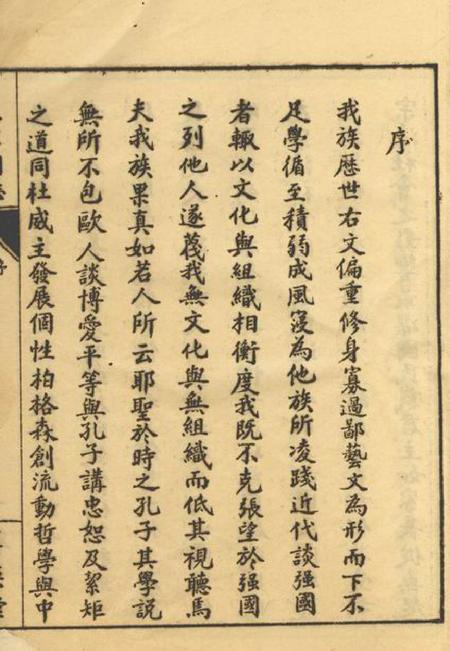 序
我族歷世右文偏重修身寡過鄙藝文為形而下不
足學循至積弱成風寖為他族所凌踐近代談强國
者輒以文化與組織相衡度我既不克張望於强國
之列他人遂蔑我無文化與無組織而低其視聽焉
夫我族果真如若人所云耶聖於時之孔子其學說
無所不包歐人談博愛平等與孔子講忠恕及絜矩
之道同杜威主發展個性柏格森創流動哲學與中